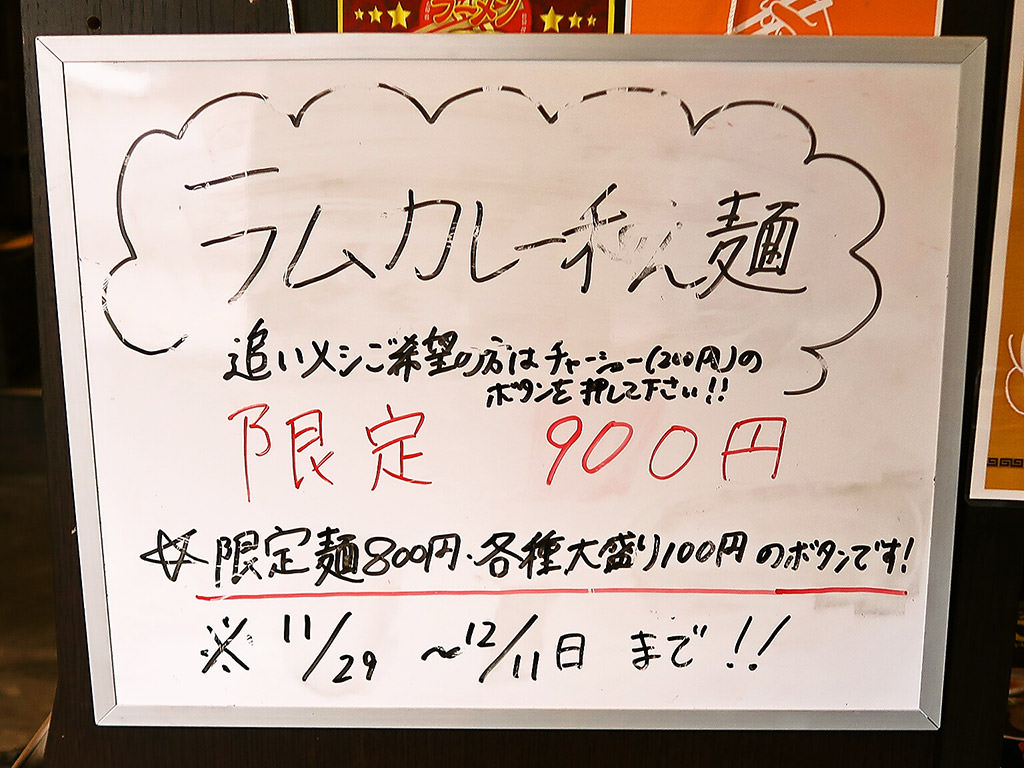 ラーメン
ラムカレー和え麺
追いメシご希望の方はチャーシュー(200円)の
ボタンを押して下さい!!
限定 900円
☆限定麺800円・各種大盛り100円のボタンです!
※ 11/29 〜12/11日 まで!!